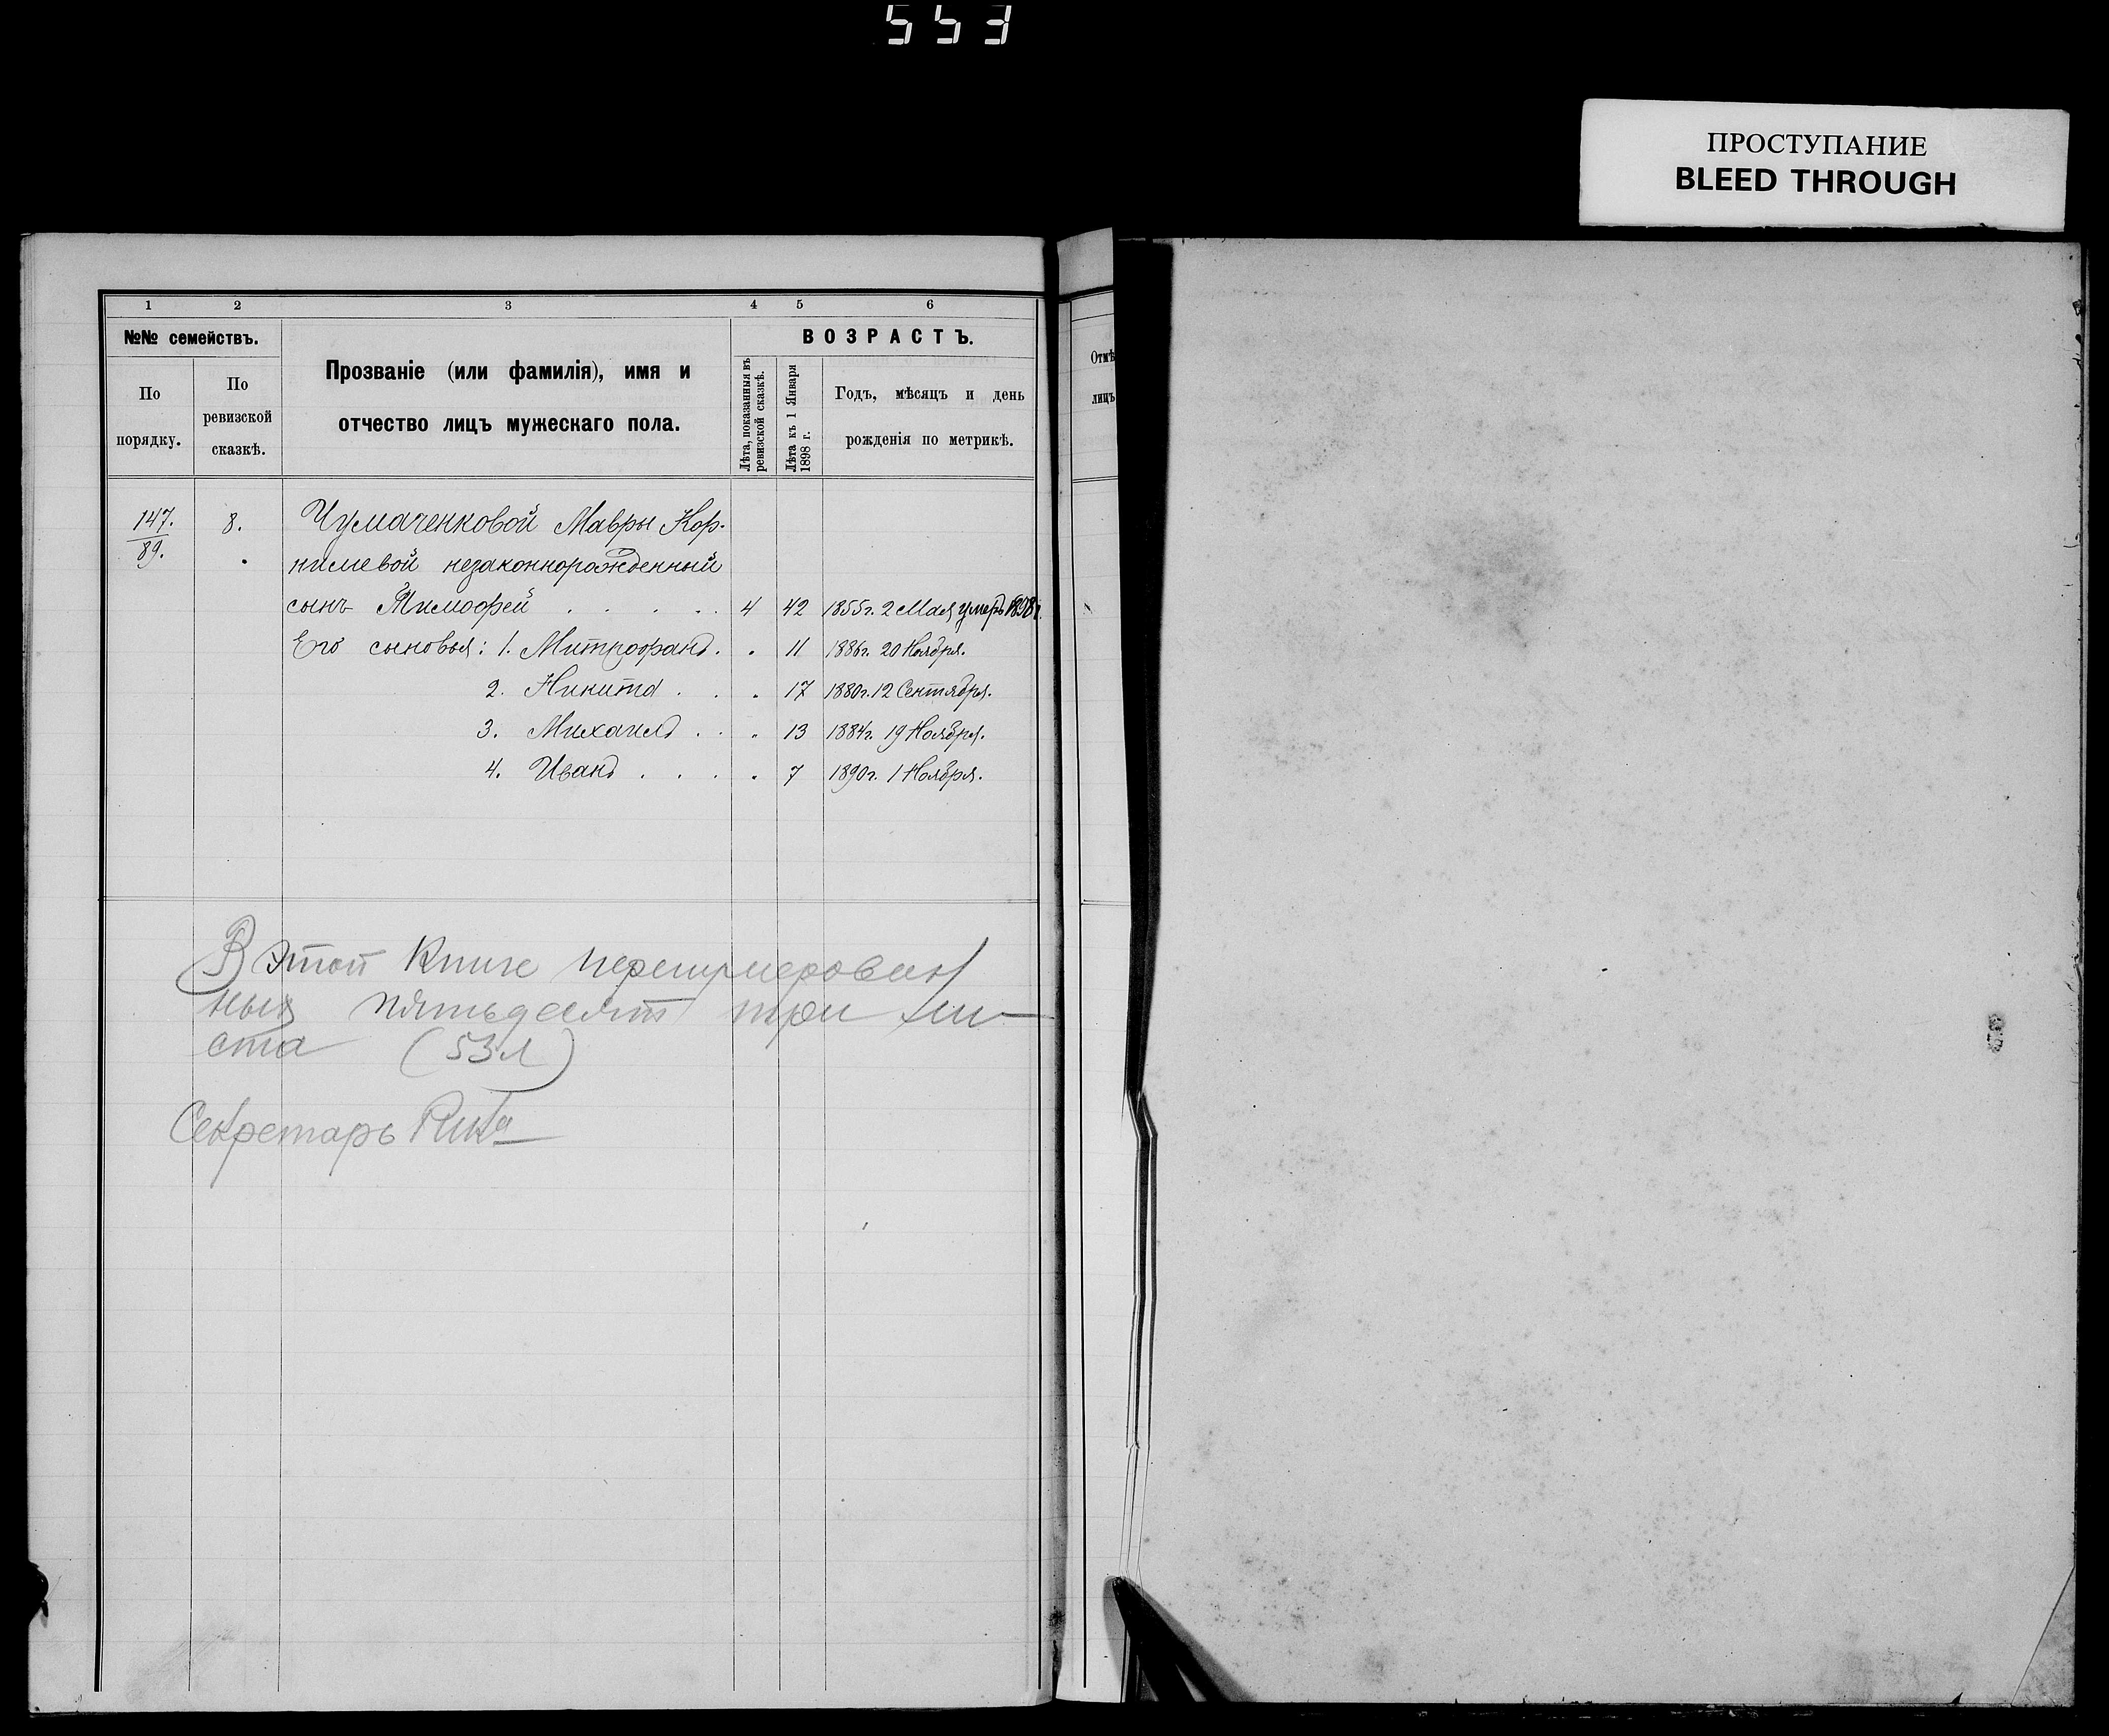 553
ПРОСТУПАНИЕ
BLEED THROUGH
1 2 3 4 5 6
№№ семействъ.
По порядку.
По ревизской сказкѣ.
Прозваніе (или фамилія), имя и
отчество лицъ мужескаго пола.
ВОЗРАСТЪ.
Лѣта, показанныя въ ревизской сказкѣ.
Лѣта къ 1 Января 1898 г.
Годъ, мѣсяцъ и день
рожденія по метрикѣ.
Отмѣ
лицъ
147. 8. Чумаченковой Мавры Кор-
89. нилевой незаконнорожденный
сынъ Тимофей . . . . . 4 42 1855г. 2 Мая умеръ 1898г.
Его сыновья: 1. Митрофанъ . . 11 1886г. 20 Ноября.
2. Никита . . . 17 1880г. 12 Сентября.
3. Михаилъ . . . 13 1884г. 19 Ноября.
4. Иванъ . . . . 7 1890г. 1 Ноября.
В этой книге перенумерован
ных пятьдесят три ли-
ста (53л)
Секретарь Рика